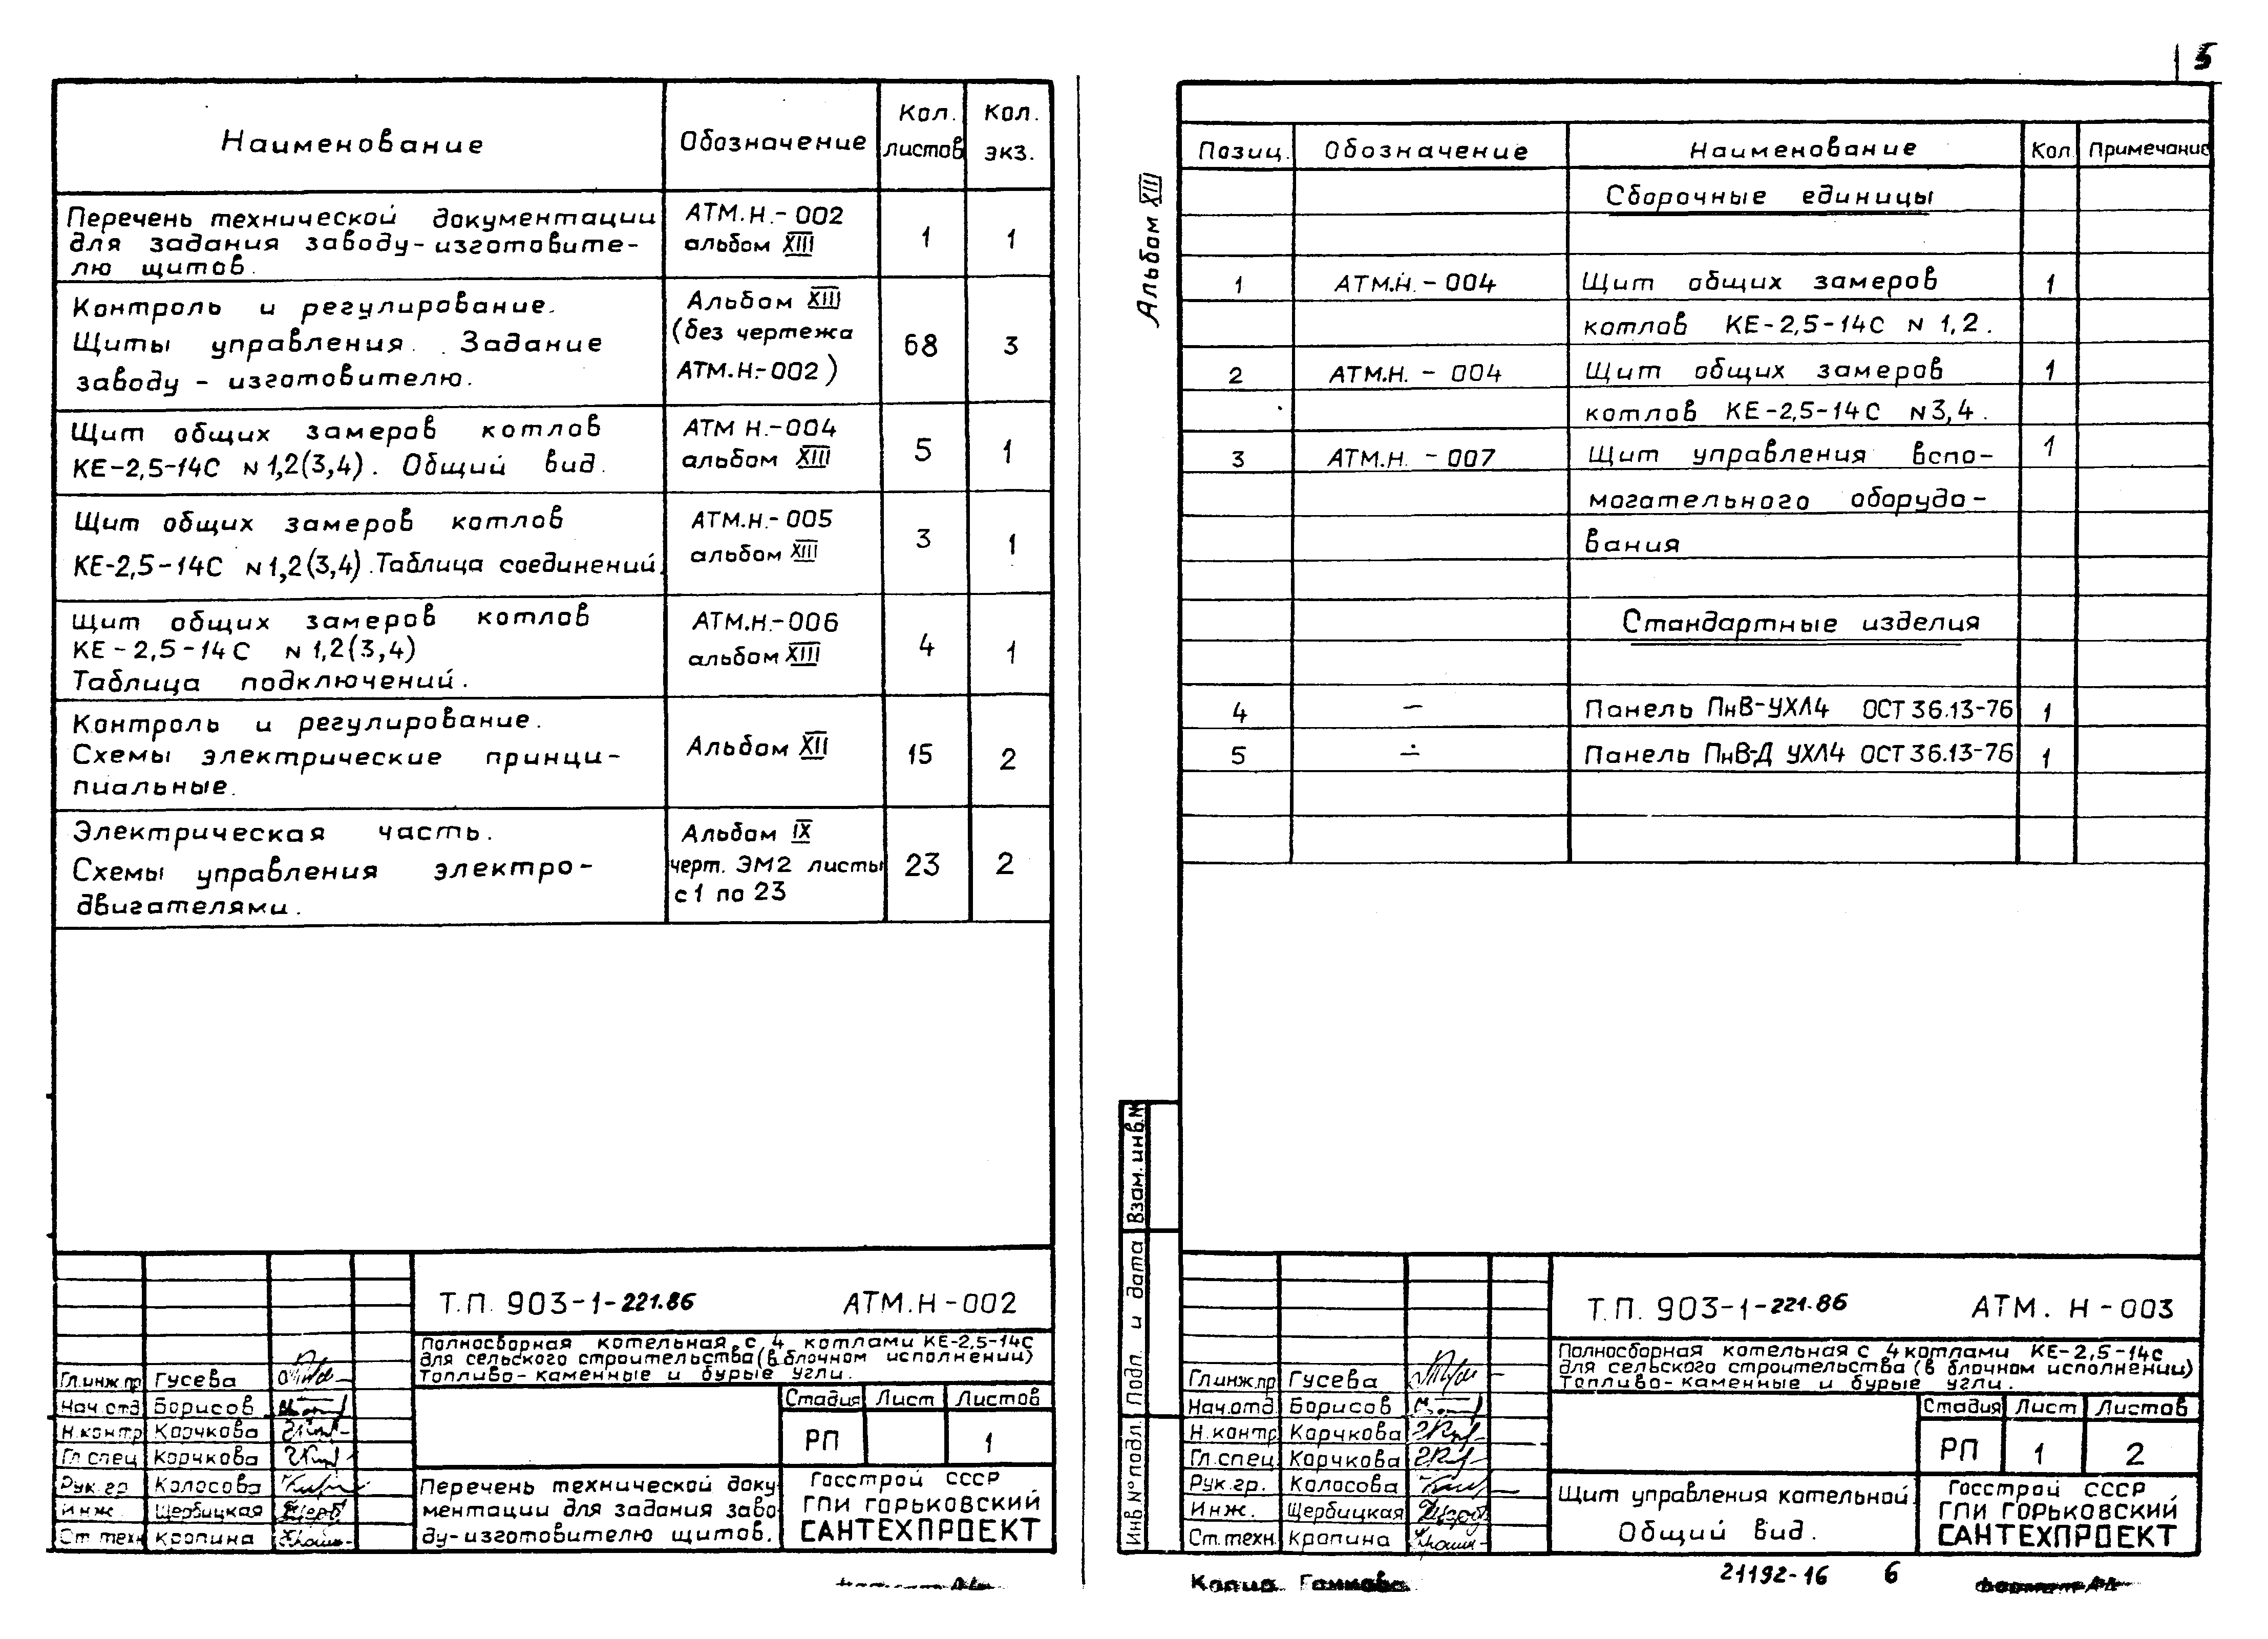 5
Наименование
Обозначение
Кол. листов
Кол. экз.
Перечень технической документации
для задания заводу-изготовите-
лю щитов.
АТМ.Н.-002
альбом XIII
1
1
Контроль и регулирование.
Щиты управления. Задание
заводу - изготовителю.
Альбом XIII
(без чертежа
АТМ.Н.-002)
68
3
Щит общих замеров котлов
КЕ-2,5-14С N1,2(3,4). Общий вид.
АТМ Н.-004
альбом XIII
5
1
Щит общих замеров котлов
КЕ-2,5-14С N1,2(3,4). Таблица соединений.
АТМ.Н.-005
альбом XIII
3
1
Щит общих замеров котлов
КЕ-2,5-14С N1,2(3,4)
Таблица подключений.
АТМ.Н.-006
альбом XIII
4
1
Контроль и регулирование.
Схемы электрические принци-
пиальные.
Альбом XII
15
2
Электрическая часть.
Схемы управления электро-
двигателями.
Альбом IX
черт. ЭМ2 листы
с 1 по 23
23
2
Т.П. 903-1-221.86 АТМ.Н-002
Полносборная котельная с 4 котлами КЕ-2,5-14С
для сельского строительства (в блочном исполнении)
Топливо-каменные и бурые угли.
Гл.инж.пр Гусева
Нач.отд Борисов
Н.контр Корчкова
Гл спец Корчкова
Рук.гр Колосова
Инж. Щербицкая
Ст.техн Кропина
Стадия Лист Листов
РП 1
Перечень технической доку
ментации для задания заво-
ду-изготовителю щитов.
Госстрой СССР
ГПИ ГОРЬКОВСКИЙ
САНТЕХПРОЕКТ
Альбом XIII
Позиц. Обозначение Наименование Кол. Примечание
Сборочные единицы
1 АТМ.Н.-004 Щит общих замеров 1
котлов КЕ-2,5-14С N 1,2.
2 АТМ.Н. - 004 Щит общих замеров 1
котлов КЕ-2,5-14С N3,4.
3 АТМ.Н. - 007 Щит управления вспо- 1
могательного оборудо-
вания
Стандартные изделия
4 - Панель ПнВ-УХЛ4 ОСТ 36.13-76 1
5 - Панель ПнВ-Д УХЛ4 ОСТ 36.13-76 1
Взам.инв.№
Подп. и дата
Инв.№ подл.
Т.П. 903-1-221.86 АТМ. Н-003
Полносборная котельная с 4 котлами КЕ-2,5-14С
для сельского строительства (в блочном исполнении)
Топливо-каменные и бурые угли.
Гл.инж.пр Гусева
Нач.отд. Борисов
Н.контр Корчкова
Гл.спец. Корчкова
Рук.гр. Колосова
Инж. Щербицкая
Ст.техн. Кропина
Стадия Лист Листов
РП 1 2
Щит управления котельной.
Общий вид.
Госстрой СССР
ГПИ ГОРЬКОВСКИЙ
САНТЕХПРОЕКТ
21192-16 6